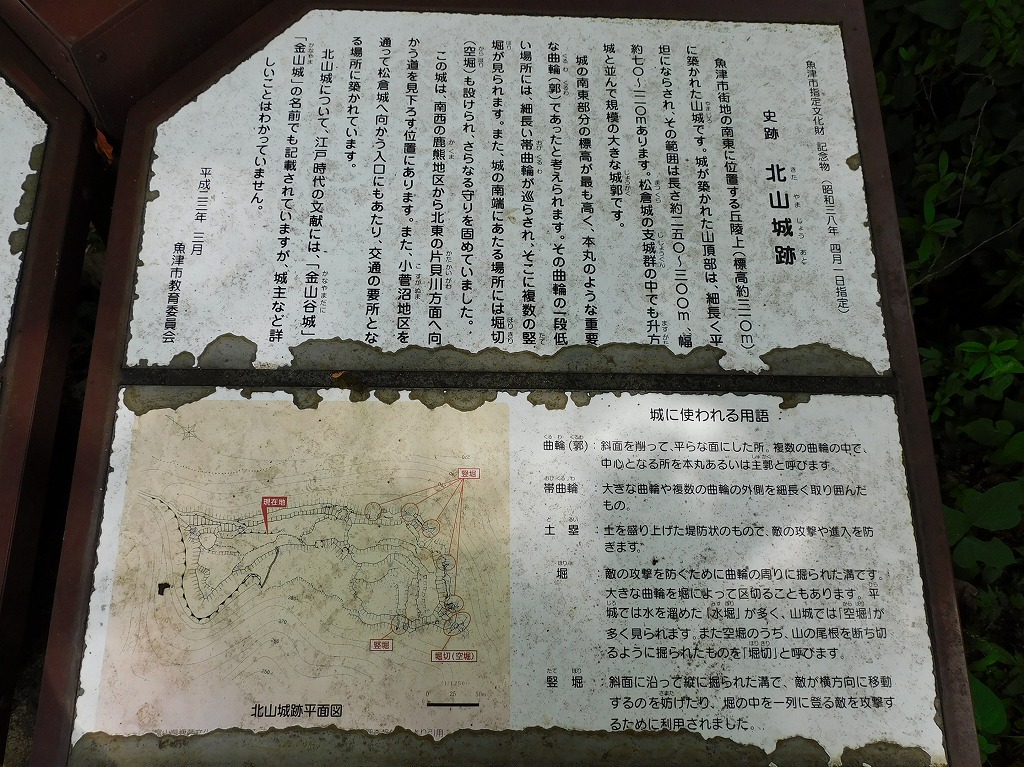 魚津市指定文化財 記念物 (昭和三八年 四月一日指定)
史跡 北山城跡
きた やま じょう あと
魚津市街地の南東に位置する丘陵上(標高約三二〇m)
に築かれた山城です。城が築かれた山頂部は、細長く平
坦にならされ、その範囲は長さ約二五〇〜三〇〇m、幅
約七〇〜一二〇mあります。松倉城の支城群の中でも升方
城と並んで規模の大きな城郭です。
城の南東部分の標高が最も高く、本丸のような重要
な曲輪(郭)であったと考えられます。その曲輪の一段低
い場所には、細長い帯曲輪が巡らされ、そこに複数の竪
堀が見られます。また、城の南端にあたる場所には堀切
(空堀)も設けられ、さらなる守りを固めていました。
この城は、南西の鹿熊地区から北東の片貝川方面へ向
かう道を見下ろす位置にあります。また、小菅沼地区を
通って松倉城へ向かう入口にもあたり、交通の要所とな
る場所に築かれています。
北山城について、江戸時代の文献には、「金山谷城」
「金山城」の名前でも記載されていますが、城主など詳
しいことはわかっていません。
平成三年 三月
魚津市教育委員会
城に使われる用語
曲輪(郭):斜面を削って、平らな面にした所。複数の曲輪の中で、
中心となる所を本丸あるいは主郭と呼びます。
帯曲輪:大きな曲輪や複数の曲輪の外側を細長く取り囲んだ
もの。
土塁:土を盛り上げた堤防状のもので、敵の攻撃や進入を防
ぎます。
堀:敵の攻撃を防ぐために曲輪の周りに掘られた溝です。
大きな曲輪を堀によって区切ることもあります。平
城では水を溜めた「水堀」が多く、山城では「空堀」が
多く見られます。また空堀のうち、山の尾根を断ち切
るように掘られたものを「堀切」と呼びます。
竪堀:斜面に沿って縦に掘られた溝で、敵が横方向に移動
するのを妨げたり、堀の中を一列に登る敵を攻撃す
るために利用されました。
竪堀
現在地
竪堀
堀切(空堀)
0 25 50m
北山城跡平面図